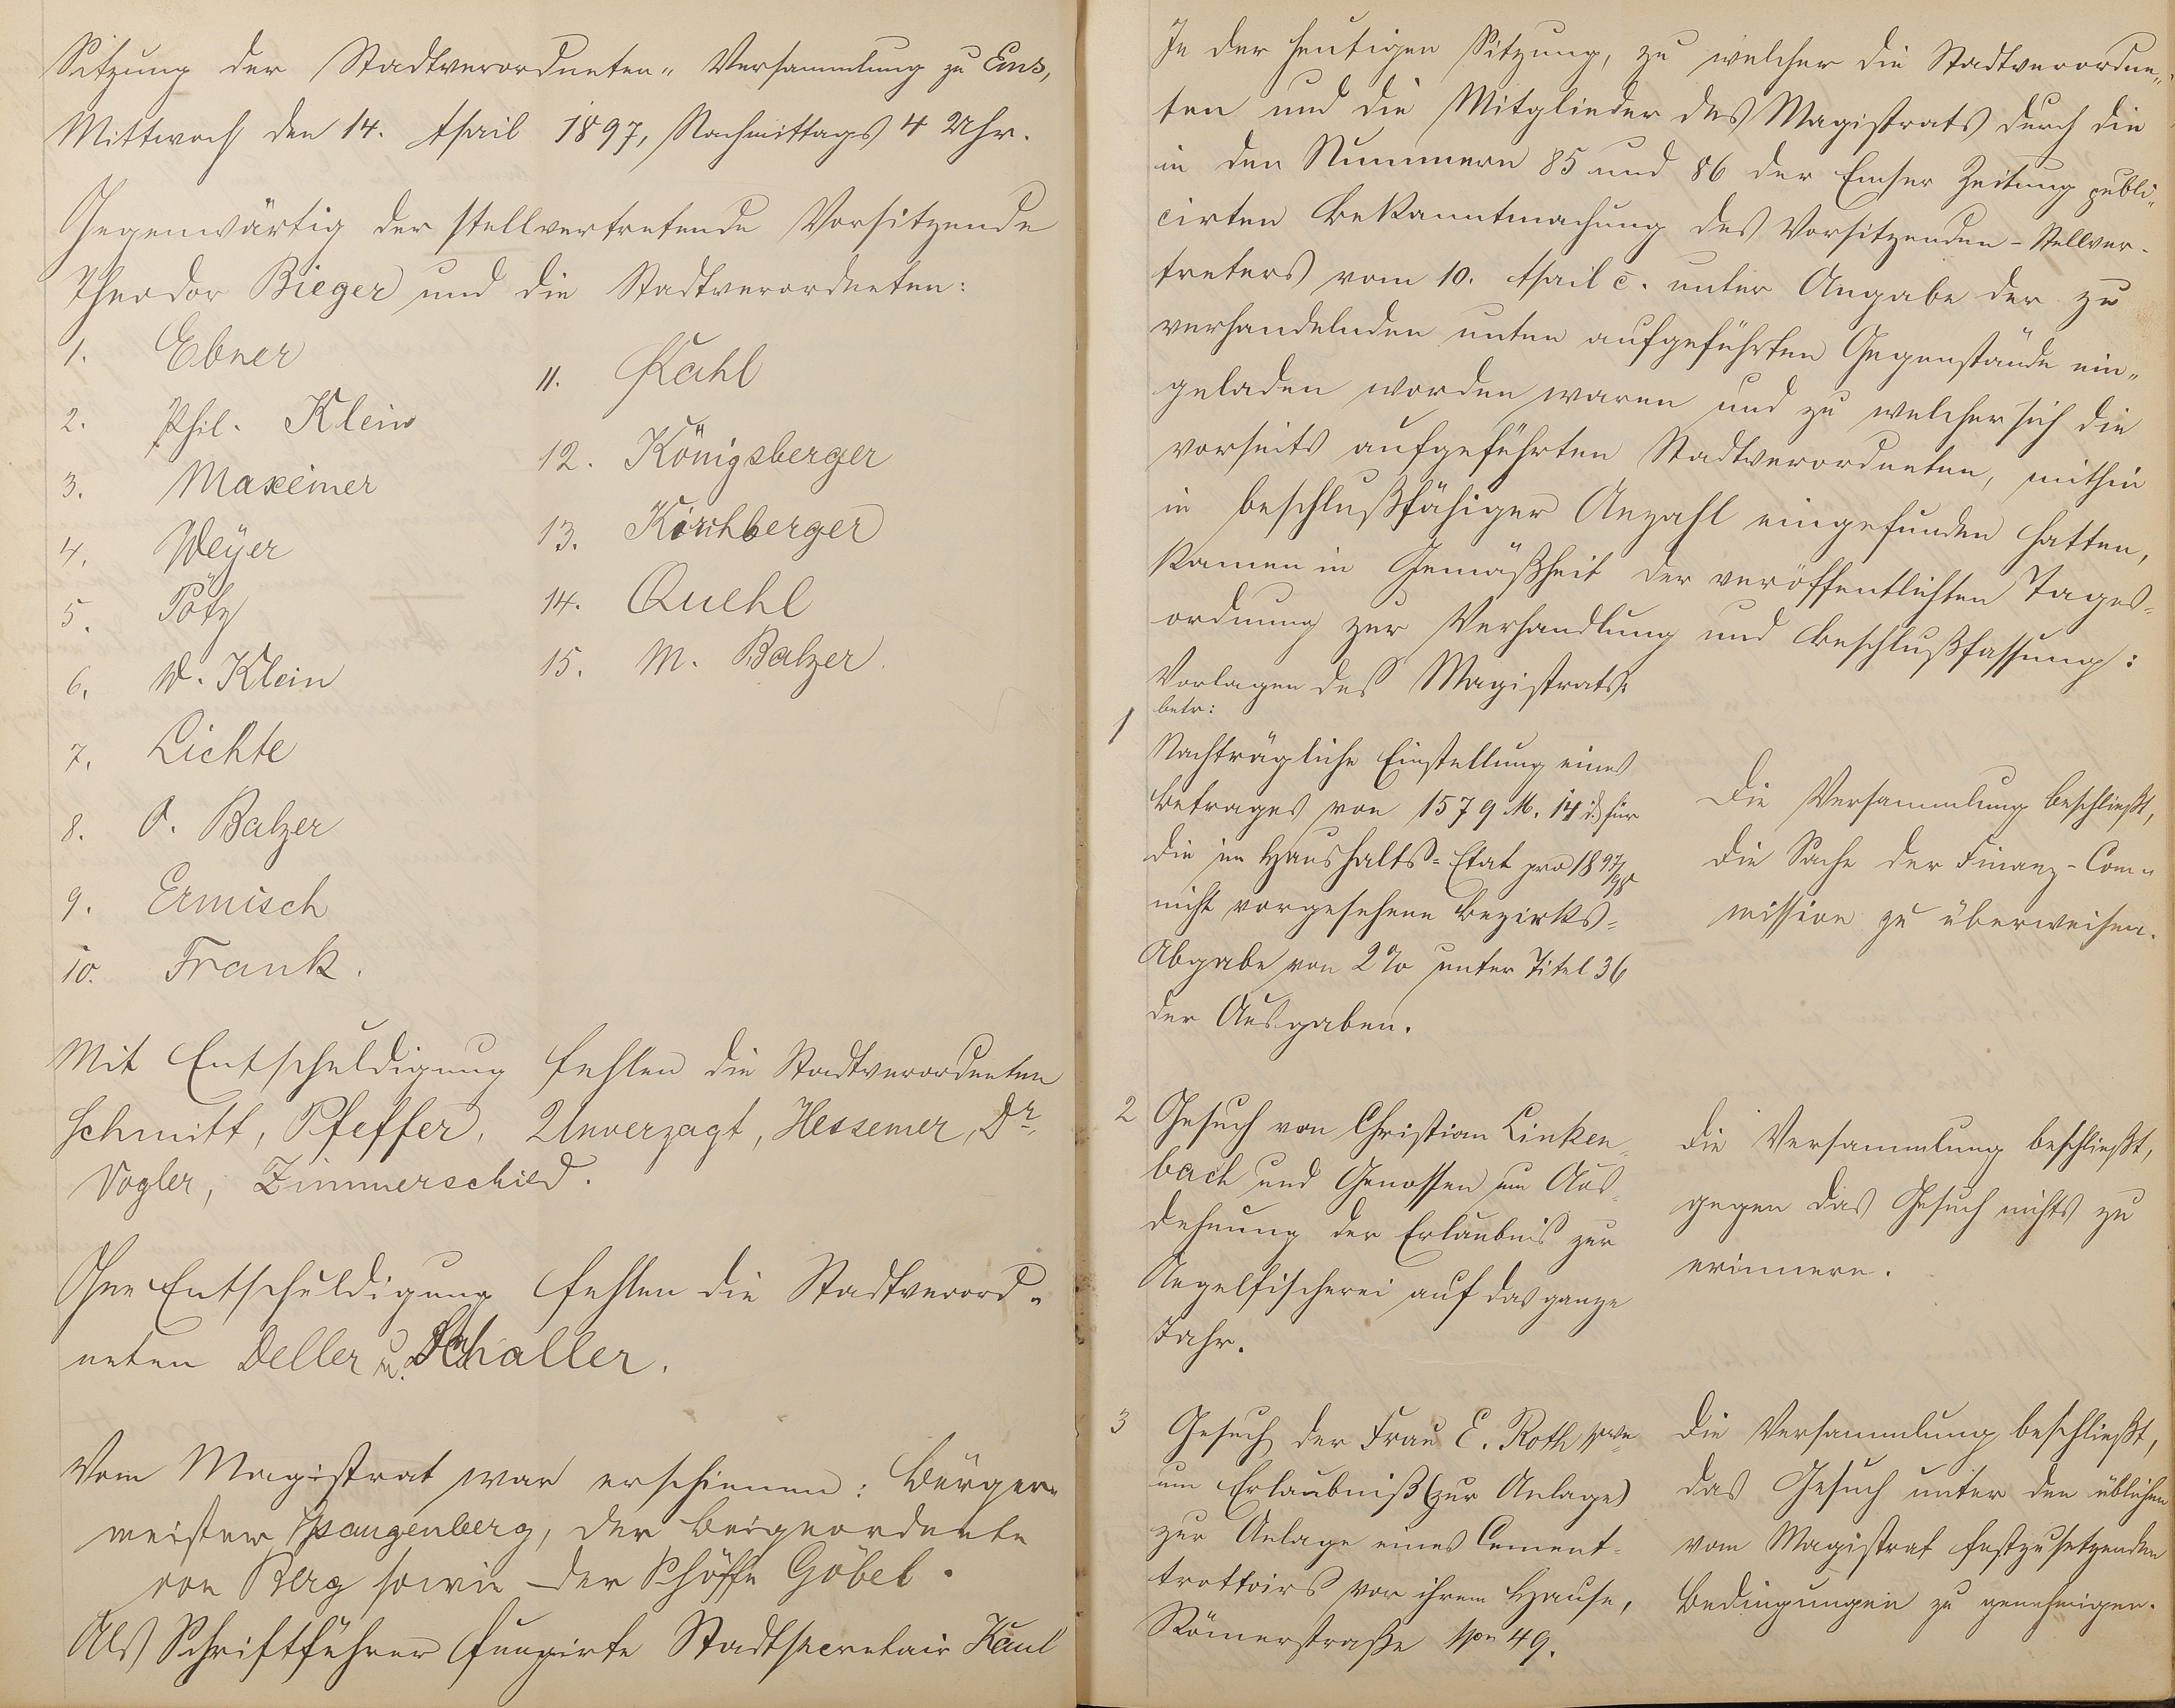 Sitzung der Stadtverordneten-Versammlung zu Ems,
Mittwoch den 14. April 1897, Nachmittags 4 Uhr.
Gegenwärtig der stellvertretende Vorsitzende
Theodor Bieger und die Stadtverordneten:
1. Ebner
2. Phil. Klein
3. Maxeiner
4. Weyer
5. Pötz
6. W. Klein
7. Lichte
8. O. Balzer
9. Ermisch
10. Frank.
11. Kahl
12. Königsberger
13. Kirchberger
14. Quehl
15. M. Balzer.
Mit Entschuldigung fehlen die Stadtverordneten
Schmitt, Pfeffer, Unverzagt, Hessemer, Dr.
Vogler, Zimmerschied.
Ohne Entschuldigung fehlen die Stadtverord-
neten Deller u. Schaller.
Vom Magistrat war erschienen: Bürger-
meister Spangenberg, der Beigeordnete
von Berg sowie der Schöffe Göbel.
Als Schriftführer fungirte Stadtsecretair Kaul
In der heutigen Sitzung, zu welcher die Stadtverordne-
ten und die Mitglieder des Magistrats durch die
in den Nummern 85 und 86 der Emser Zeitung publi-
cirten Bekanntmachung des Vorsitzenden-Stellver-
treters vom 10. April c. unter Angabe der zu
verhandelnden unten aufgeführten Gegenstände ein-
geladen worden waren und zu welcher sich die
vorseits aufgeführten Stadtverordneten, mithin
in beschlußfähiger Anzahl eingefunden hatten,
kamen in Gemäßheit der veröffentlichten Tages-
ordnung zur Verhandlung und Beschlußfassung:
Vorlagen des Magistrats
betr:
1 Nachträgliche Einstellung eines
Betrages von 1579 M. 14 d. für
die im Haushalts-Etat pro 1897/98
nicht vorgesehene Bezirks-
Abgabe von 2% unter Titel 36
der Ausgaben.
Die Versammlung beschließt,
die Sache der Finanz-Com-
mission zu überweisen.
2 Gesuch von Christian Linken-
bach und Genossen um Aus-
dehnung der Erlaubniß zur
Angelfischerei auf das ganze
Jahr.
Die Versammlung beschließt,
gegen das Gesuch nichts zu
erinnern.
3 Gesuch der Frau E. Roth Wwe
um Erlaubniß (zur Anlage)
zur Anlage eines Cement-
trottoirs vor ihrem Hause,
Römerstraße No 49.
Die Versammlung beschließt,
das Gesuch unter den üblichen
vom Magistrat festzusetzenden
Bedingungen zu genehmigen.